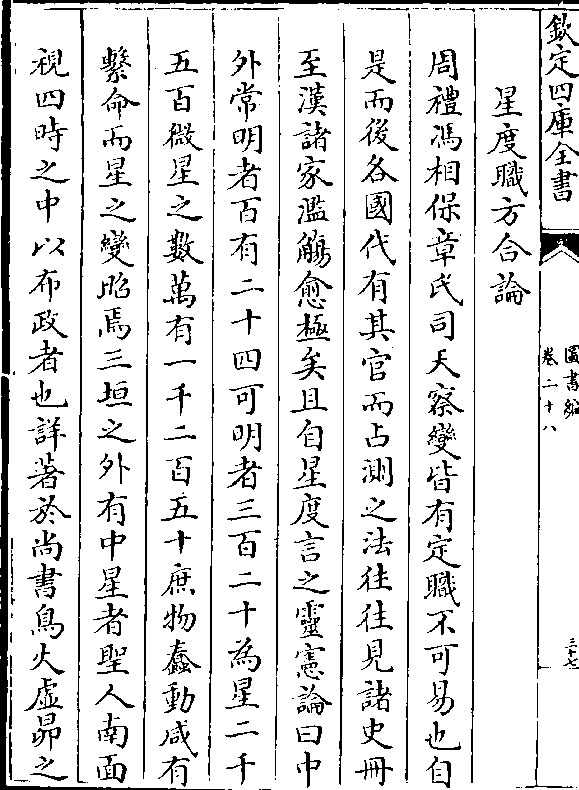 欽定四庫全書
圖書編
卷二十八
三十七
星度職方合論
周禮馮相保章氏司天察變皆有定職不可易也自
是而後各國代有其官而占測之法往往見諸史冊
至漢諸家濫觴愈極矣且自星度言之靈憲論曰中
外常明者百有二十四可明者三百二十為星二千
五百微星之數萬有一千二百五十庶物蠢動咸有
繫命而星之變昭焉三垣之外有中星者聖人南面
視四時之中以布政者也詳著於尚書鳥火虛昴之